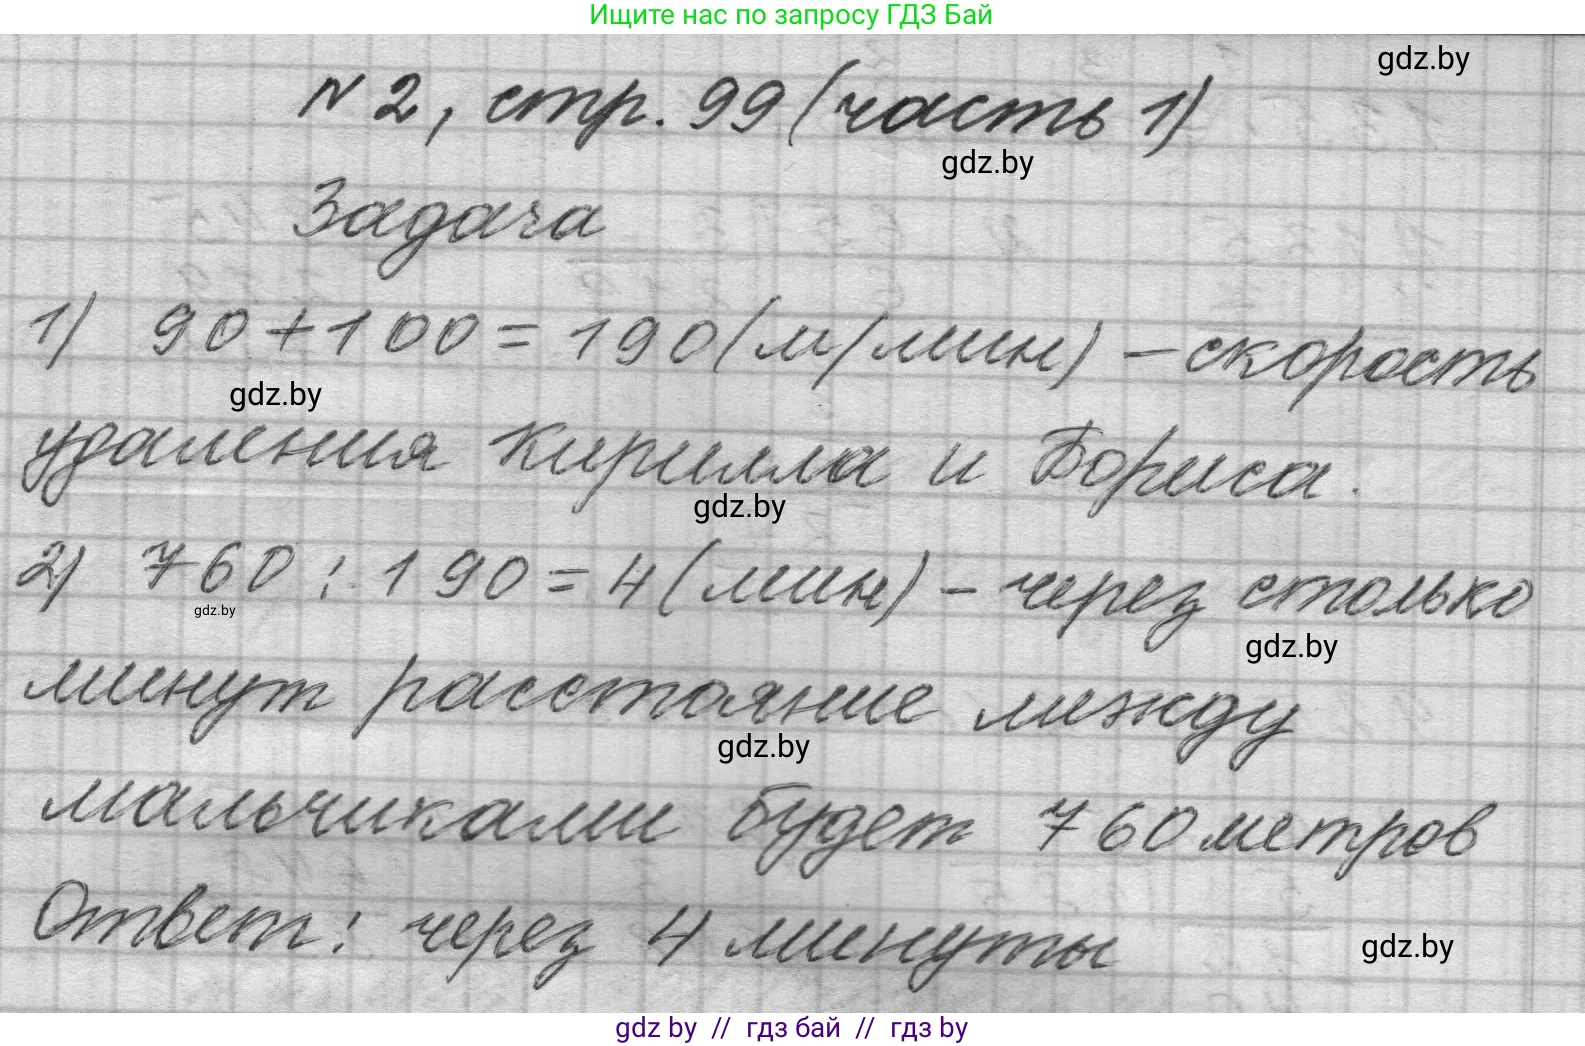 Ищите нас по запросу ГДЗ Бай
gdz.by
№ 2, стр. 99 (часть 1)
gdz.by
Задача
1) 90 + 100 = 190 (м/мин) – скорость
gdz.by
удаления Кирилла и Бориса.
gdz.by
2) 760 : 190 = 4 (мин) – через столько
gdz.by
gdz.by
минут расстояние между
gdz.by
мальчиками будет 760 метров
Ответ: через 4 минуты
gdz.by
gdz by // гдз бай // гдз by